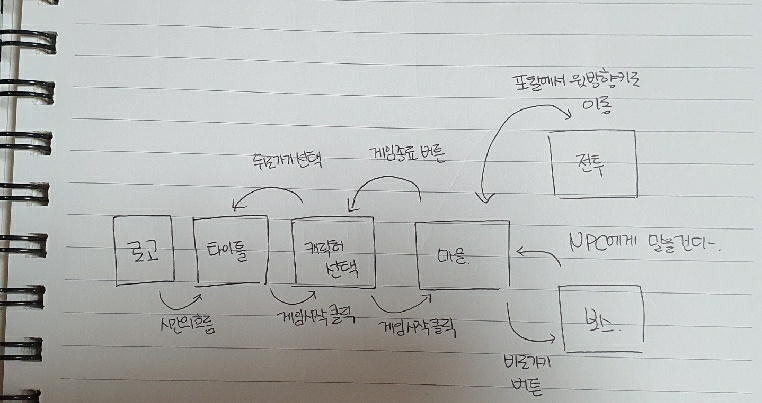 포탈에서 윗방향키로
이동
뒤로가기 선택
게임종료 버튼
전투
로고
타이틀
캐릭터
선택
마을.
NPC에게 말을건다.
시간의흐름
게임시작 클릭
게임시작 클릭
보스.
바로가기
버튼